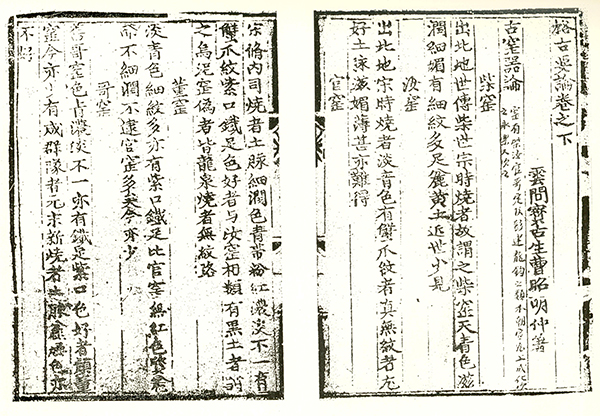 格古要論卷之下
雲間寶古生曹昭明仲著
古窑器論
柴窑
出北地世傳柴世宗時燒者故謂之柴窑天青色滋
潤細媚有細紋多足麄黄土近世少見
汝窑
出北地宋時燒者淡青色有蠏爪紋者真無紋者尤
好土脉滋媚薄甚亦難得
官窑
宋脩内司燒者土脉細潤色青帶粉紅濃淡不一有
蠏爪紋紫口鐵足色好者与汝窑相類有黒土者謂
之烏泥窑偽者皆龍泉燒者無紋路
董窑
淡青色細紋多亦有紫口鐵足比官窑無紅色質
不細潤不逮官窑多矣今亦少
哥窑
舊哥窑色青濃淡不一亦有鐵足紫口色好者類董
窑今亦少有成群隊者元末新燒者土脉麄燥色亦
不好